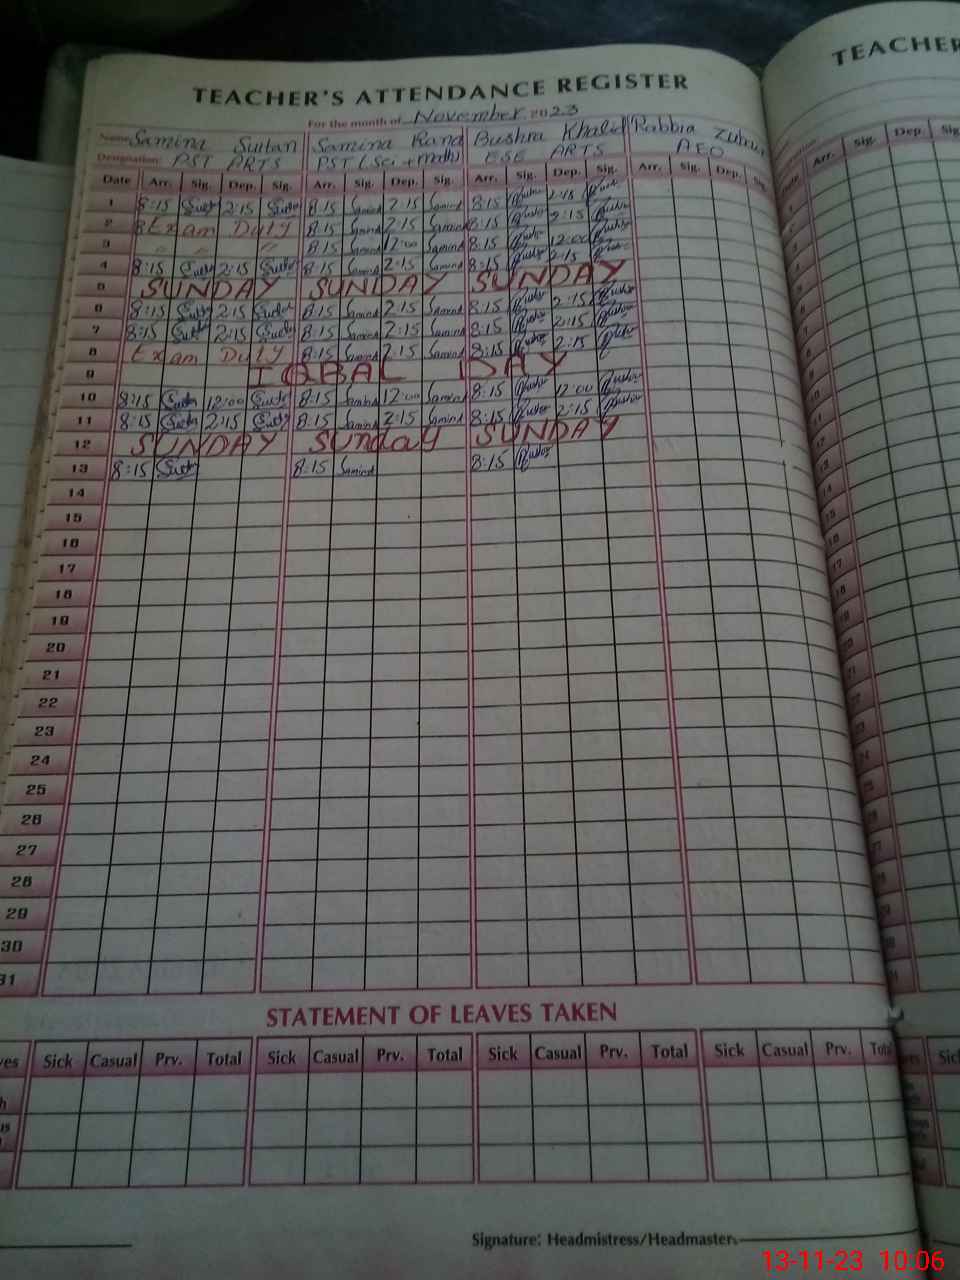 TEACHER'S ATTENDANCE REGISTER
TEACHER
For the month of November 2023
Name Samina Sultan Samina Rana Bushra Khalid Rabbia
Designation: PST ARTS PST (Sci + math) ESE ARTS AEO
Date Arr. Sig. Dep. Sig. Arr. Sig. Dep. Sig. Arr. Sig. Dep. Sig. Arr. Sig. Dep. Sig. Arr. Sig. Dep.
1 8:15 2:15 8:15 Samina 2:15 Samina 8:15 2:15
2 Exam Duty 8:15 Samina 2:15 Samina 8:15 2:15
3 " " " 8:15 Samina 12:00 Samina 8:15 12:00
4 8:15 2:15 8:15 Samina 2:15 Samina 8:15 2:15
5 SUNDAY SUNDAY SUNDAY
6 8:15 2:15 8:15 Samina 2:15 Samina 8:15 2:15
7 8:15 2:15 8:15 Samina 2:15 Samina 8:15 2:15
8 Exam Duty 8:15 Samina 2:15 Samina 8:15 2:15
9 IQBAL DAY
10 8:15 12:00 8:15 Samina 12:00 Samina 8:15 12:00
11 8:15 2:15 8:15 Samina 2:15 Samina 8:15 2:15
12 SUNDAY Sunday SUNDAY
13 8:15 8:15 Samina 8:15
14
15
16
17
18
19
20
21
22
23
24
25
26
27
28
29
30
31
STATEMENT OF LEAVES TAKEN
Sick Casual Prv. Total Sick Casual Prv. Total Sick Casual Prv. Total Sick Casual Prv. Total
Signature: Headmistress/Headmaster
13-11-23 10:06